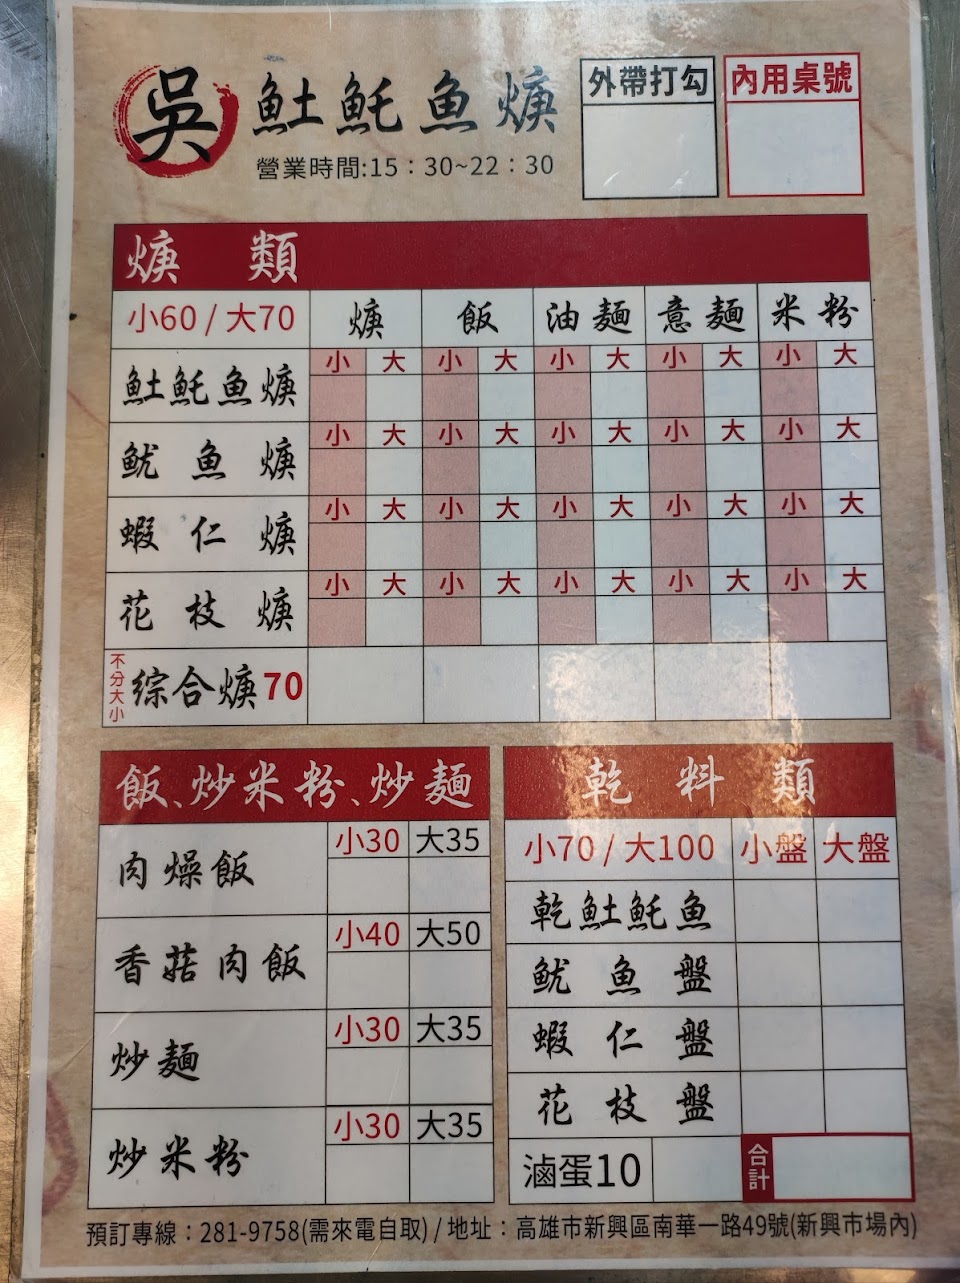 吳 魠魠魚焿
營業時間:15：30~22：30
外帶打勾
內用桌號
焿類
小60 / 大70 焿 飯 油麵 意麵 米粉
魠魠魚焿 小 大 小 大 小 大 小 大 小 大
魷魚焿 小 大 小 大 小 大 小 大 小 大
蝦仁焿 小 大 小 大 小 大 小 大 小 大
花枝焿 小 大 小 大 小 大 小 大 小 大
不分大小 綜合焿70
飯、炒米粉、炒麵
肉燥飯 小30 大35
香菇肉飯 小40 大50
炒麵 小30 大35
炒米粉 小30 大35
乾料類
小70 / 大100 小盤 大盤
乾魠魠魚
魷魚盤
蝦仁盤
花枝盤
滷蛋10 合計
預訂專線：281-9758(需來電自取) / 地址：高雄市新興區南華一路49號(新興市場內)